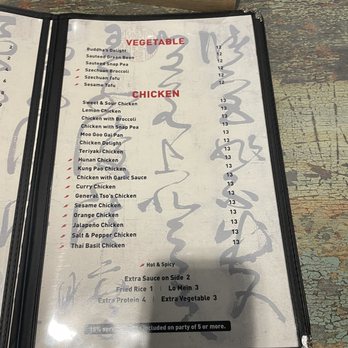 VEGETABLE
Buddha's Delight 13
Sauteed Green Bean 12
Sauteed Snap Pea 12
Szechuan Broccoli 12
Szechuan Tofu 12
Sesame Tofu 12
CHICKEN
Sweet & Sour Chicken 13
Lemon Chicken 13
Chicken with Broccoli 13
Chicken with Snap Pea 13
Moo Goo Gai Pan 13
Chicken Delight 13
Teriyaki Chicken 13
Hunan Chicken 13
Kung Pao Chicken 13
Chicken with Garlic Sauce 13
Curry Chicken 13
General Tso's Chicken 13
Sesame Chicken 13
Orange Chicken 13
Jalapeño Chicken 13
Salt & Pepper Chicken 13
Thai Basil Chicken 13
Hot & Spicy
Extra Sauce on Side 2
Fried Rice 1 | Lo Mein 3
Extra Protein 4 | Extra Vegetable 3
included on party of 5 or more.